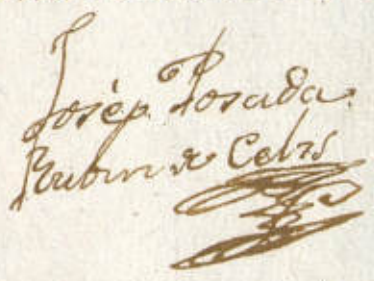 Josèp. Posada.
Rubin de Celis